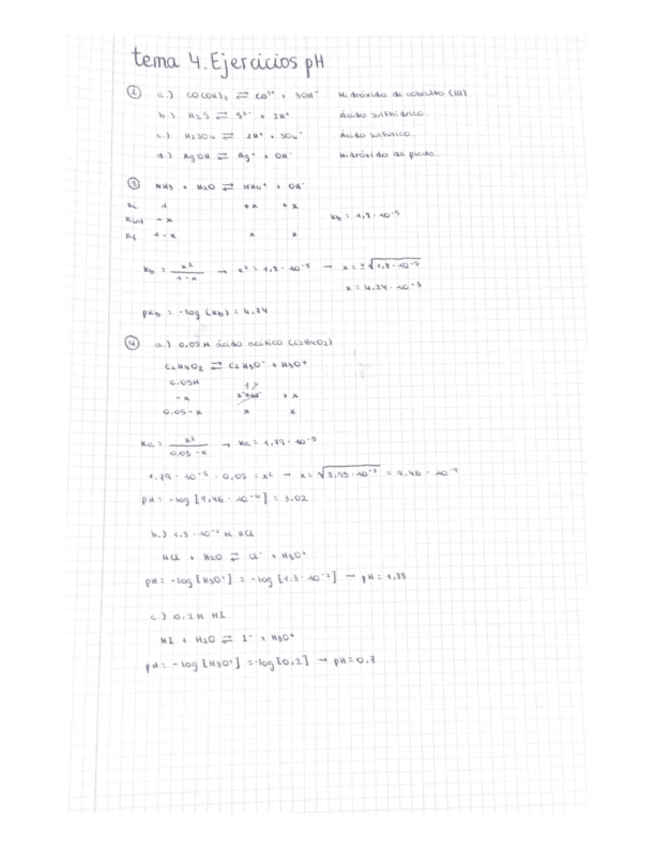 tema 4. Ejercicios pH
② a.) Co(OH)₃ ⇄ Co³⁺ + 3OH⁻ Hidróxido de cobalto (III).
b.) H₂S ⇄ S²⁻ + 2H⁺ Ácido sulfhídrico.
c.) H₂SO₄ ⇄ 2H⁺ + SO₄⁻ Ácido sulfúrico.
d.) AgOH ⇄ Ag⁺ + OH⁻ Hidróxido de plata.
③ NH₃ + H₂O ⇄ NH₄⁺ + OH⁻
1 +x +x
-x Kb = 1,8 · 10⁻⁵
1-x x x
Kb = x² / 1-x → x² = 1,8 · 10⁻⁵ → x = ±√1,8 · 10⁻⁵
x = 4,24 · 10⁻³
pKb = -log (Kb) = 4,74
④ a.) 0,05 M ácido acético (C₂H₄O₂)
C₂H₄O₂ ⇄ C₂H₃O⁻ + H₃O⁺
0,05M
-x +x
0,05-x x x
Ka = x² / 0,05-x → Ka = 1,79 · 10⁻⁵
1,79 · 10⁻⁵ · 0,05 = x² → x = √8,95 · 10⁻⁷ = 9,46 · 10⁻⁴
pH = -log [9,46 · 10⁻⁴] = 3,02
b.) 1,3 · 10⁻² M HCl
HCl + H₂O ⇄ Cl⁻ + H₃O⁺
pH = -log [H₃O⁺] = -log [1,3 · 10⁻²] → pH = 1,88
c.) 0,2 M HI
HI + H₂O ⇄ I⁻ + H₃O⁺
pH = -log [H₃O⁺] = -log [0,2] → pH = 0,7